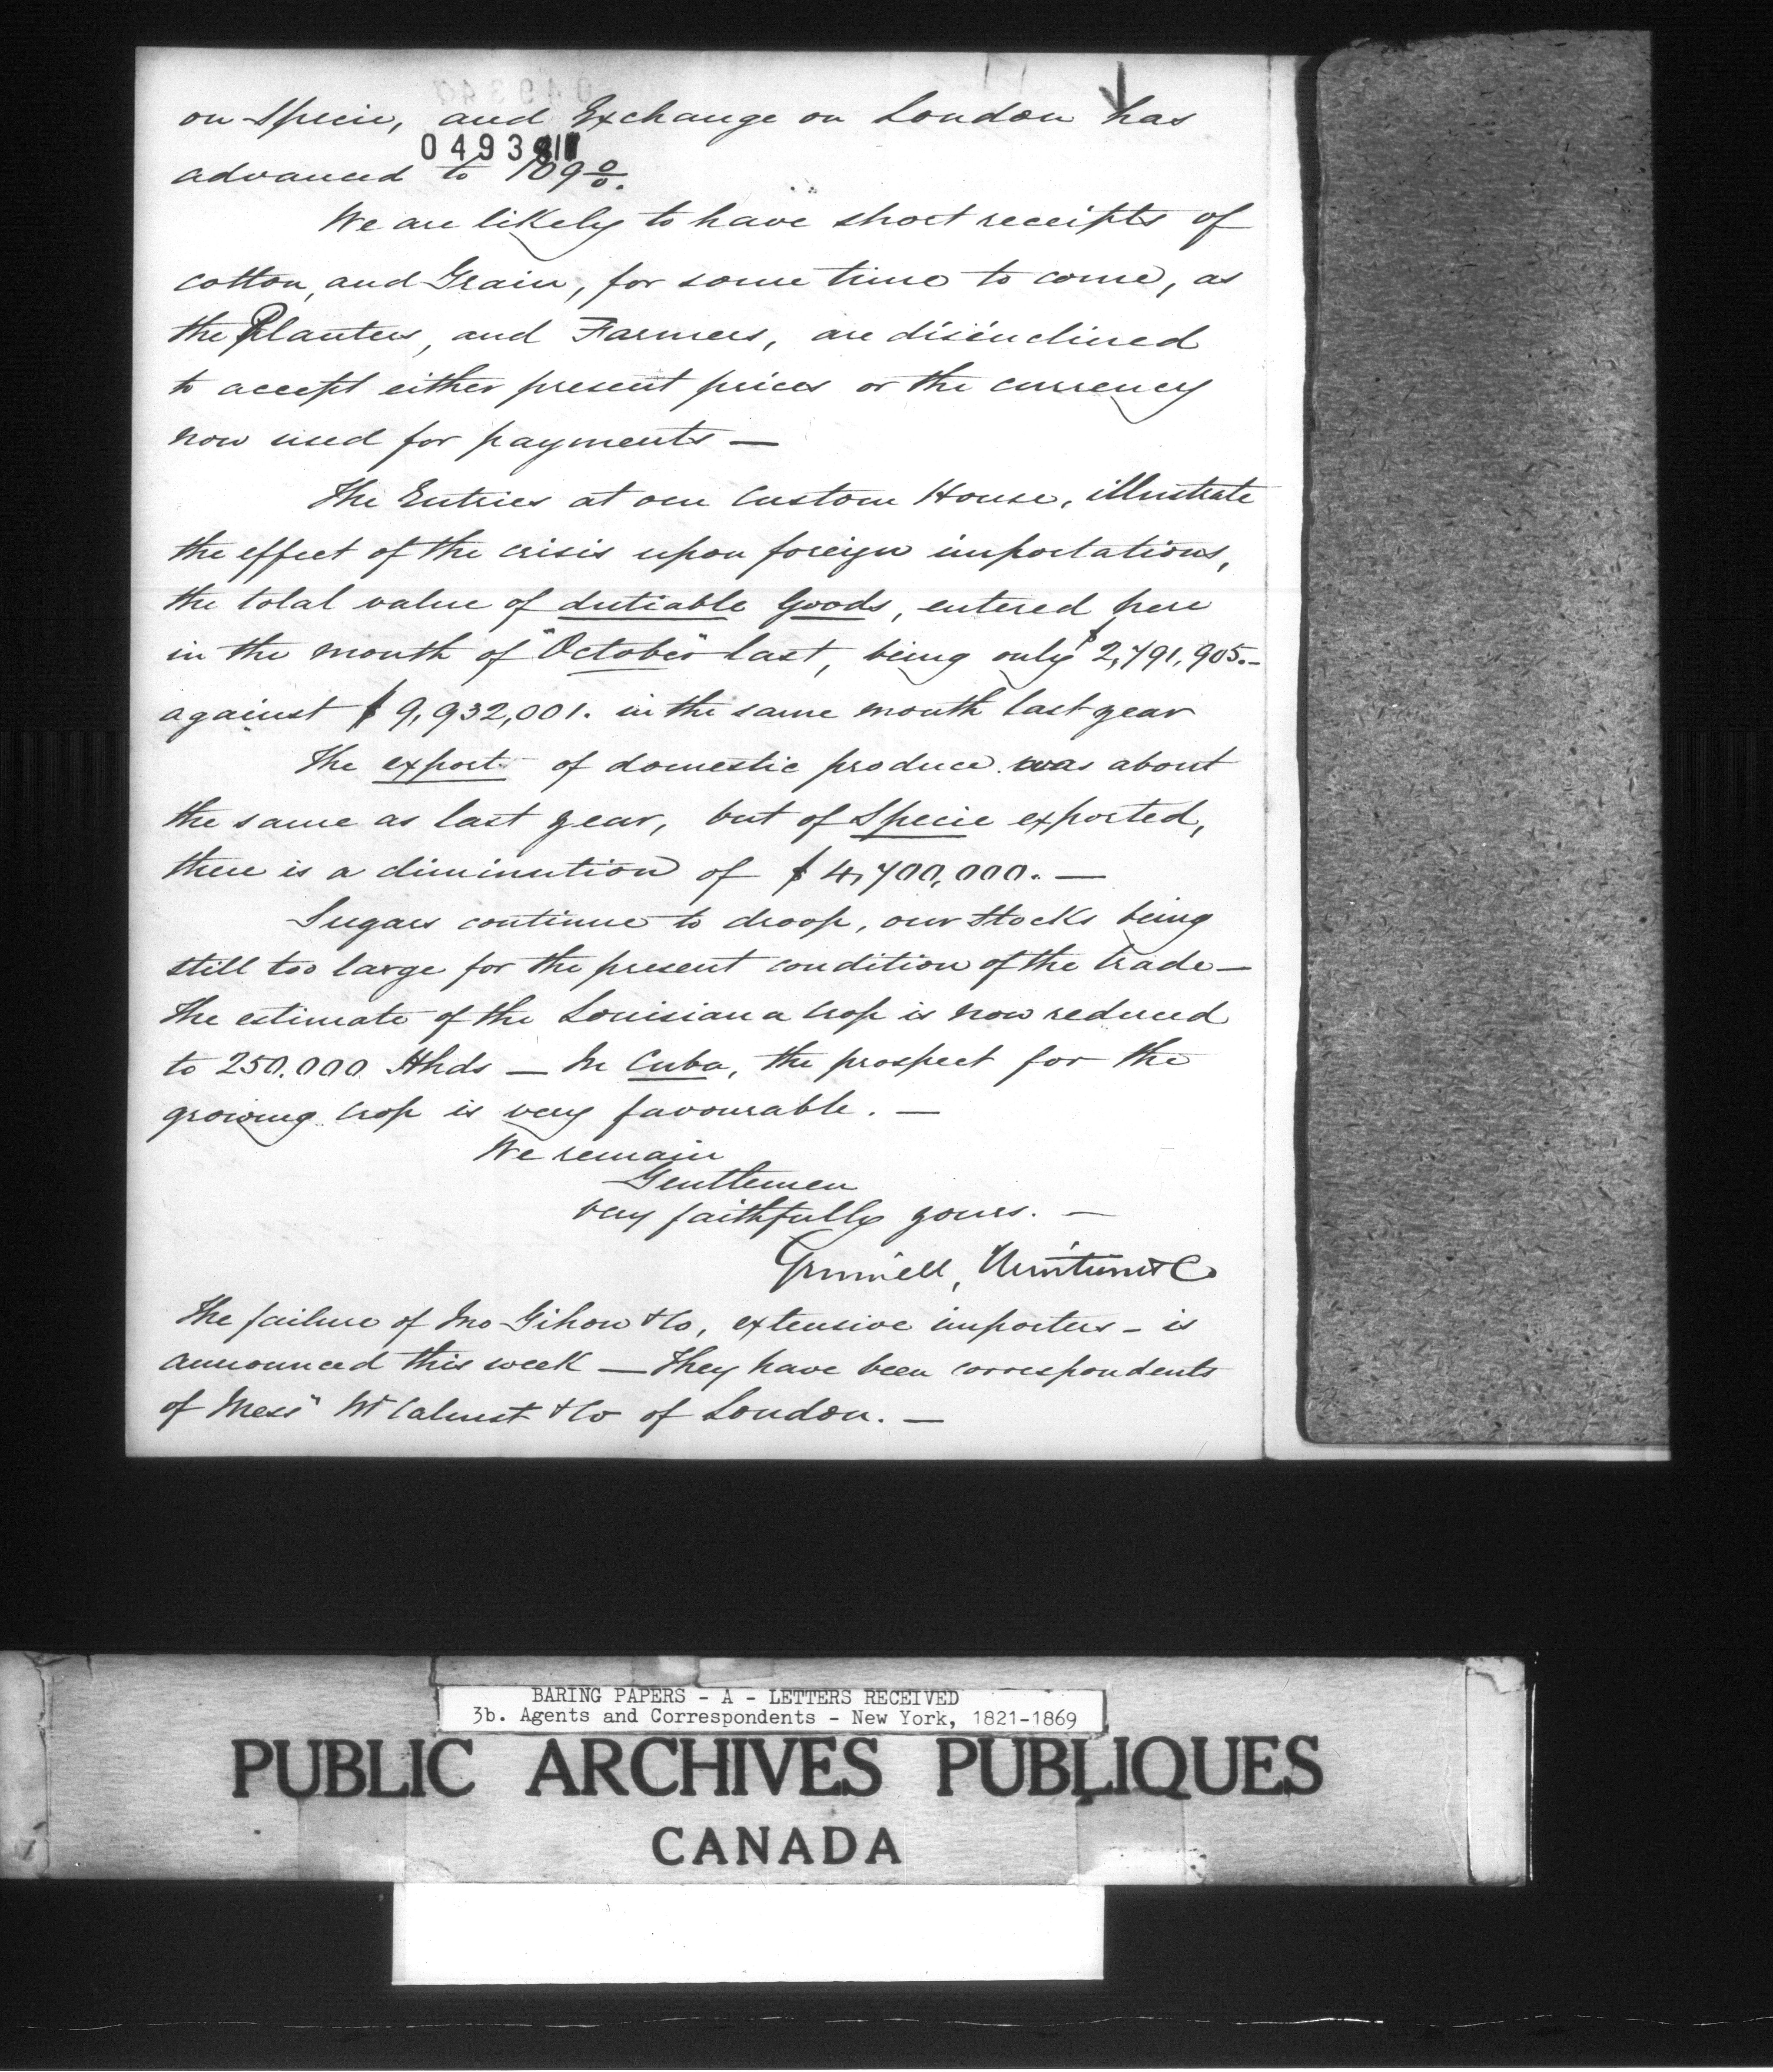 on Specie, and Exchange on London has
04938
advanced to 109 %.
We are likely to have short receipts of
cotton, and Grain, for some time to come, as
the Planters, and Farmers, are disinclined
to accept either present prices or the currency
now used for payments —
The Entries at our Custom House, illustrate
the effect of the crisis upon foreign importations,
the total value of dutiable Goods, entered here
in the month of "October" last, being only $2,791,905.-
against $9,932,001. in the same month last year
The export of domestic produce was about
the same as last year, but of Specie exported,
there is a diminution of $4,700,000. —
Sugars continue to droop, our Stocks being
still too large for the present condition of the trade —
The estimate of the Louisiana crop is now reduced
to 250.000 Hhds — In Cuba, the prospect for the
growing crop is very favourable. —
We remain
Gentlemen
very faithfully yours. —
Grinnell, Minturn & Co
The failure of Jno Gihon & Co, extensive importers - is
announced this week — They have been correspondents
of Mess" McCalmont & Co of London. —
BARING PAPERS - A - LETTERS RECEIVED
3b. Agents and Correspondents - New York, 1821-1869
PUBLIC ARCHIVES PUBLIQUES
CANADA